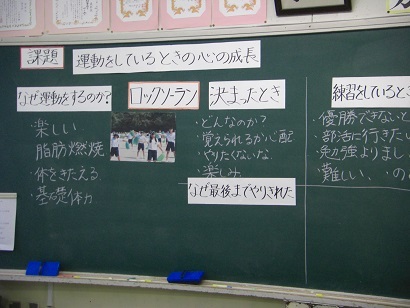 課題
運動をしているときの心の成長
なぜ運動をするのか?
楽しい
脂肪燃焼
・体をきたえる
・基礎体力
ロックソーラン
決まったとき
・どんなのか?
・覚えられるか心配
・やりたくないな
・楽しみ
なぜ最後までやりきれた
練習をしているとき
・優勝できないと
・部活に行きたい
・勉強よりまし
・難しい、